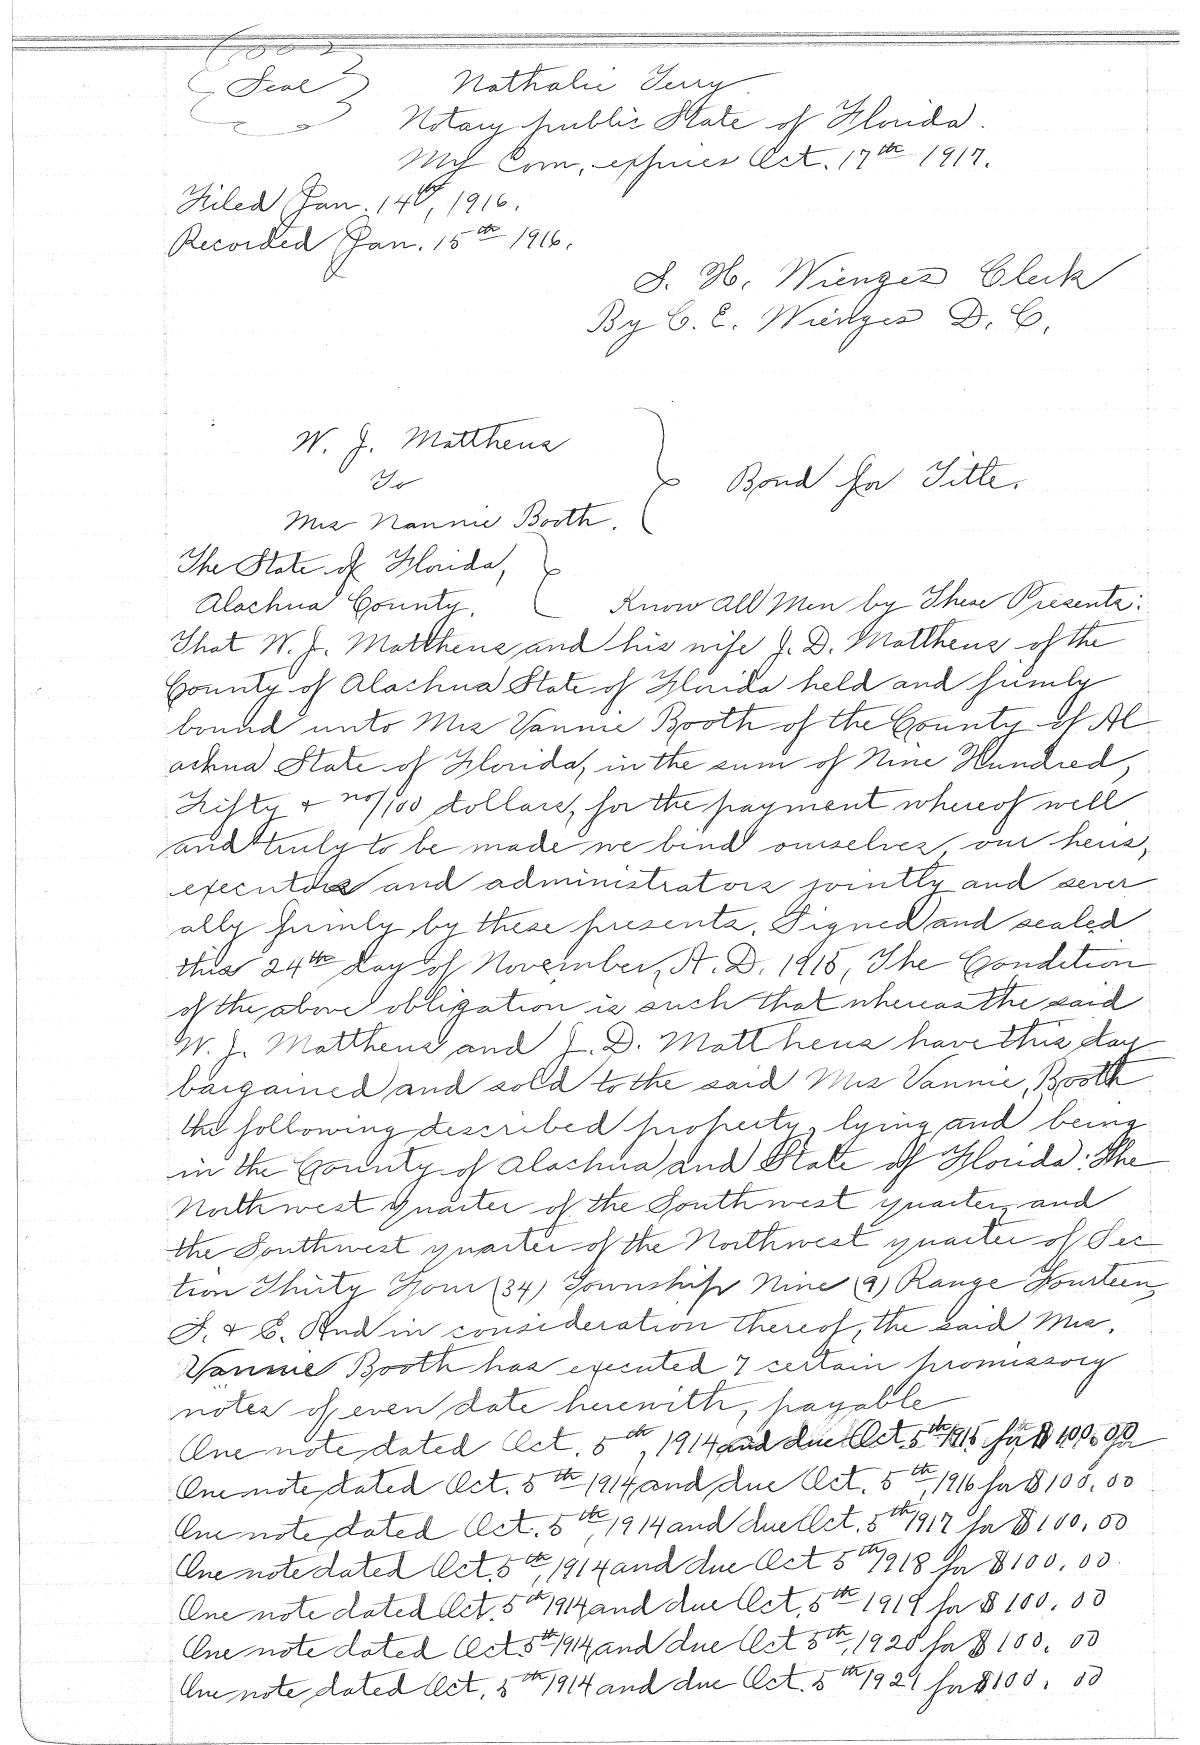 Seal
Nathalie Terry
Notary public State of Florida.
My Com, expires Oct. 17th 1917.
Filed Jan. 14th, 1916.
Recorded Jan. 15th 1916.
S. H. Wienges Clerk
By C. E. Wienges D. C.
W. J. Matthews
To
Mrs Nannie Booth.
Bond for Title.
The State of Florida,
Alachua County.
Know All Men by These Presents:
That W. J. Matthews and his wife J. D. Matthews of the
County of Alachua State of Florida held and firmly
bound unto Mrs Vannie Booth of the County of Al
achua State of Florida, in the sum of Nine Hundred,
Fifty & no/100 dollars, for the payment whereof well
and truly to be made we bind ourselves, our heirs,
executors and administrators jointly and sever
ally firmly by these presents. Signed and sealed
this 24th day of November, A. D. 1915, The Condition
of the above obligation is such that whereas the said
W. J. Matthews and J. D. Matthews have this day
bargained and sold to the said Mrs Vannie, Booth
the following described property, lying and being
in the County of Alachua and State of Florida: The
Northwest quarter of the Southwest quarter, and
the Southwest quarter of the Northwest quarter of Sec
tion Thirty Four (34) Township Nine (9) Range Fourteen,
S. & E. And in consideration thereof, the said Mrs.
Vannie Booth has executed 7 certain promissory
notes of even date herewith, payable
One note dated Oct. 5th, 1914 and due Oct. 5th 1915 for $100.00
One note dated Oct. 5th 1914 and due Oct. 5th, 1916 for $100.00
One note dated Oct. 5th, 1914 and due Oct. 5th 1917 for $100.00
One note dated Oct. 5th, 1914 and due Oct 5th 1918 for $100.00.
One note dated Oct. 5th 1914 and due Oct. 5th 1919 for $100.00
One note dated Oct 5th 1914 and due Oct 5th, 1920 for $100.00
One note dated Oct. 5th 1914 and due Oct. 5th 1921 for $100.00